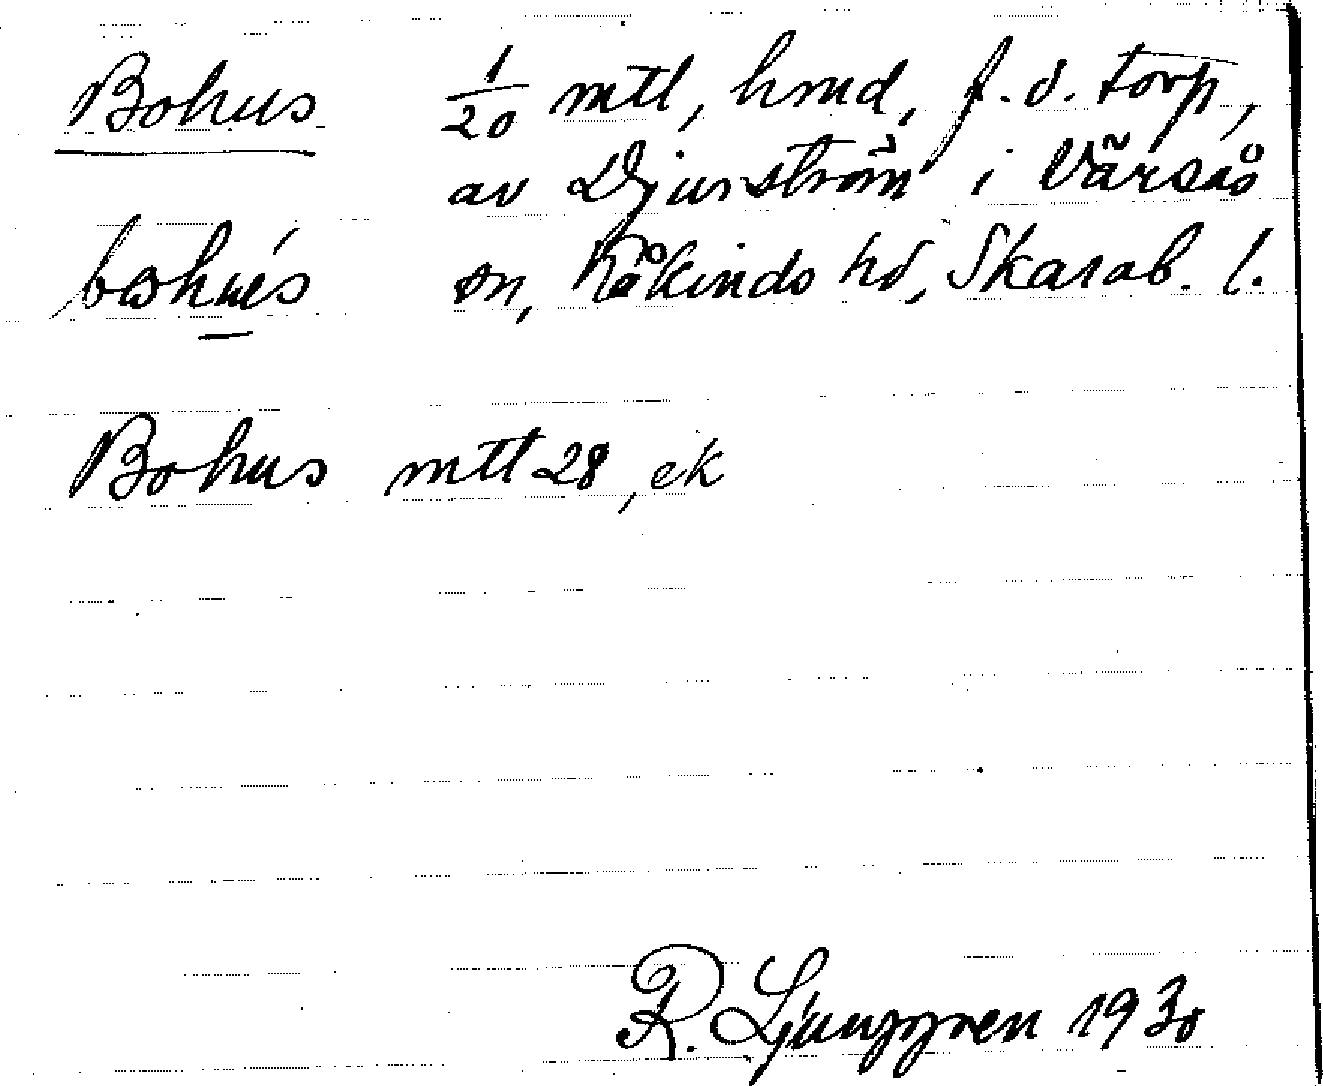 Bohus 1/20 mtl, hmd, f.d. torp,
av Djurström i Värsås
bohus sn, Kåkinds hd, Skarab. l.
Bohus mtl 28, ek
R. Ljunggren 1930